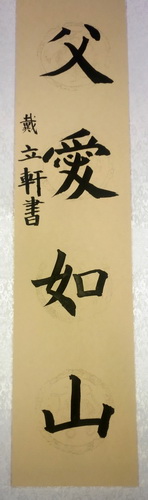 父愛如山
戴立軒書